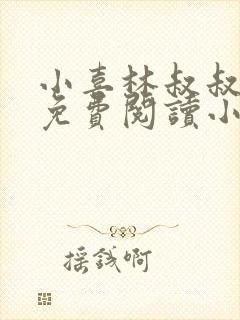 小喜林叔叔
免費閱讀小
採錢啊